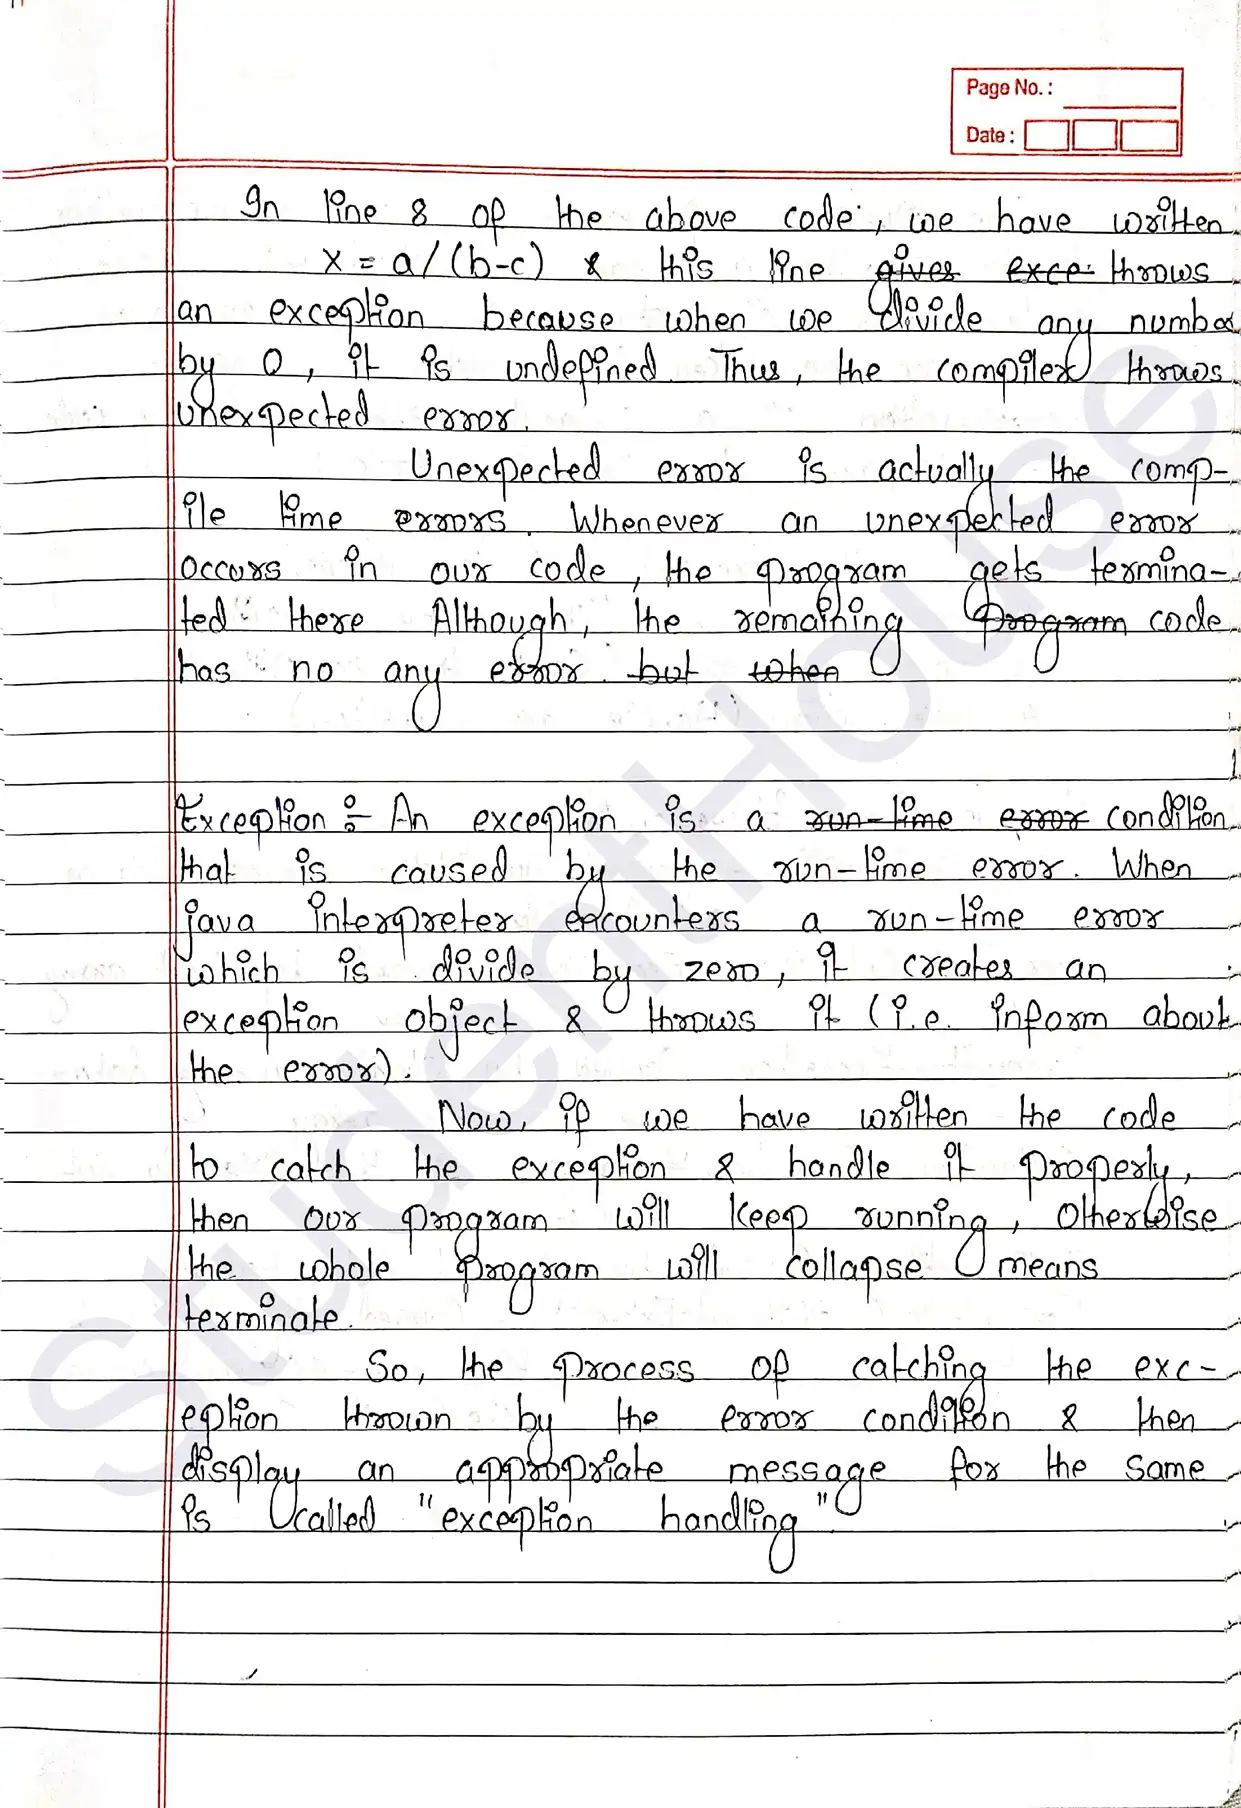 Page No. :
Date :
In line 8 of the above code, we have written
x = a/(b-c) & this line gives exce. throws
an exception because when we divide any number
by 0, it is undefined. Thus, the compiler throws
unexpected error.
Unexpected error is actually the comp-
ile time errors. Whenever an unexpected error
occurs in our code, the program gets termina-
ted there Although, the remaining program code
has no any error. but when
Exception :- An exception is a run-time error condition
that is caused by the run-time error. When
java interpreter encounters a run-time error
which is divide by zero, it creates an
exception object & throws it (i.e. inform about
the error).
Now, if we have written the code
to catch the exception & handle it properly,
then our program will keep running, otherwise
the whole program will collapse means
terminate.
So, the process of catching the exc-
eption thrown by the error condition & then
display an appropriate message for the same
is called "exception handling"
StudentHouse